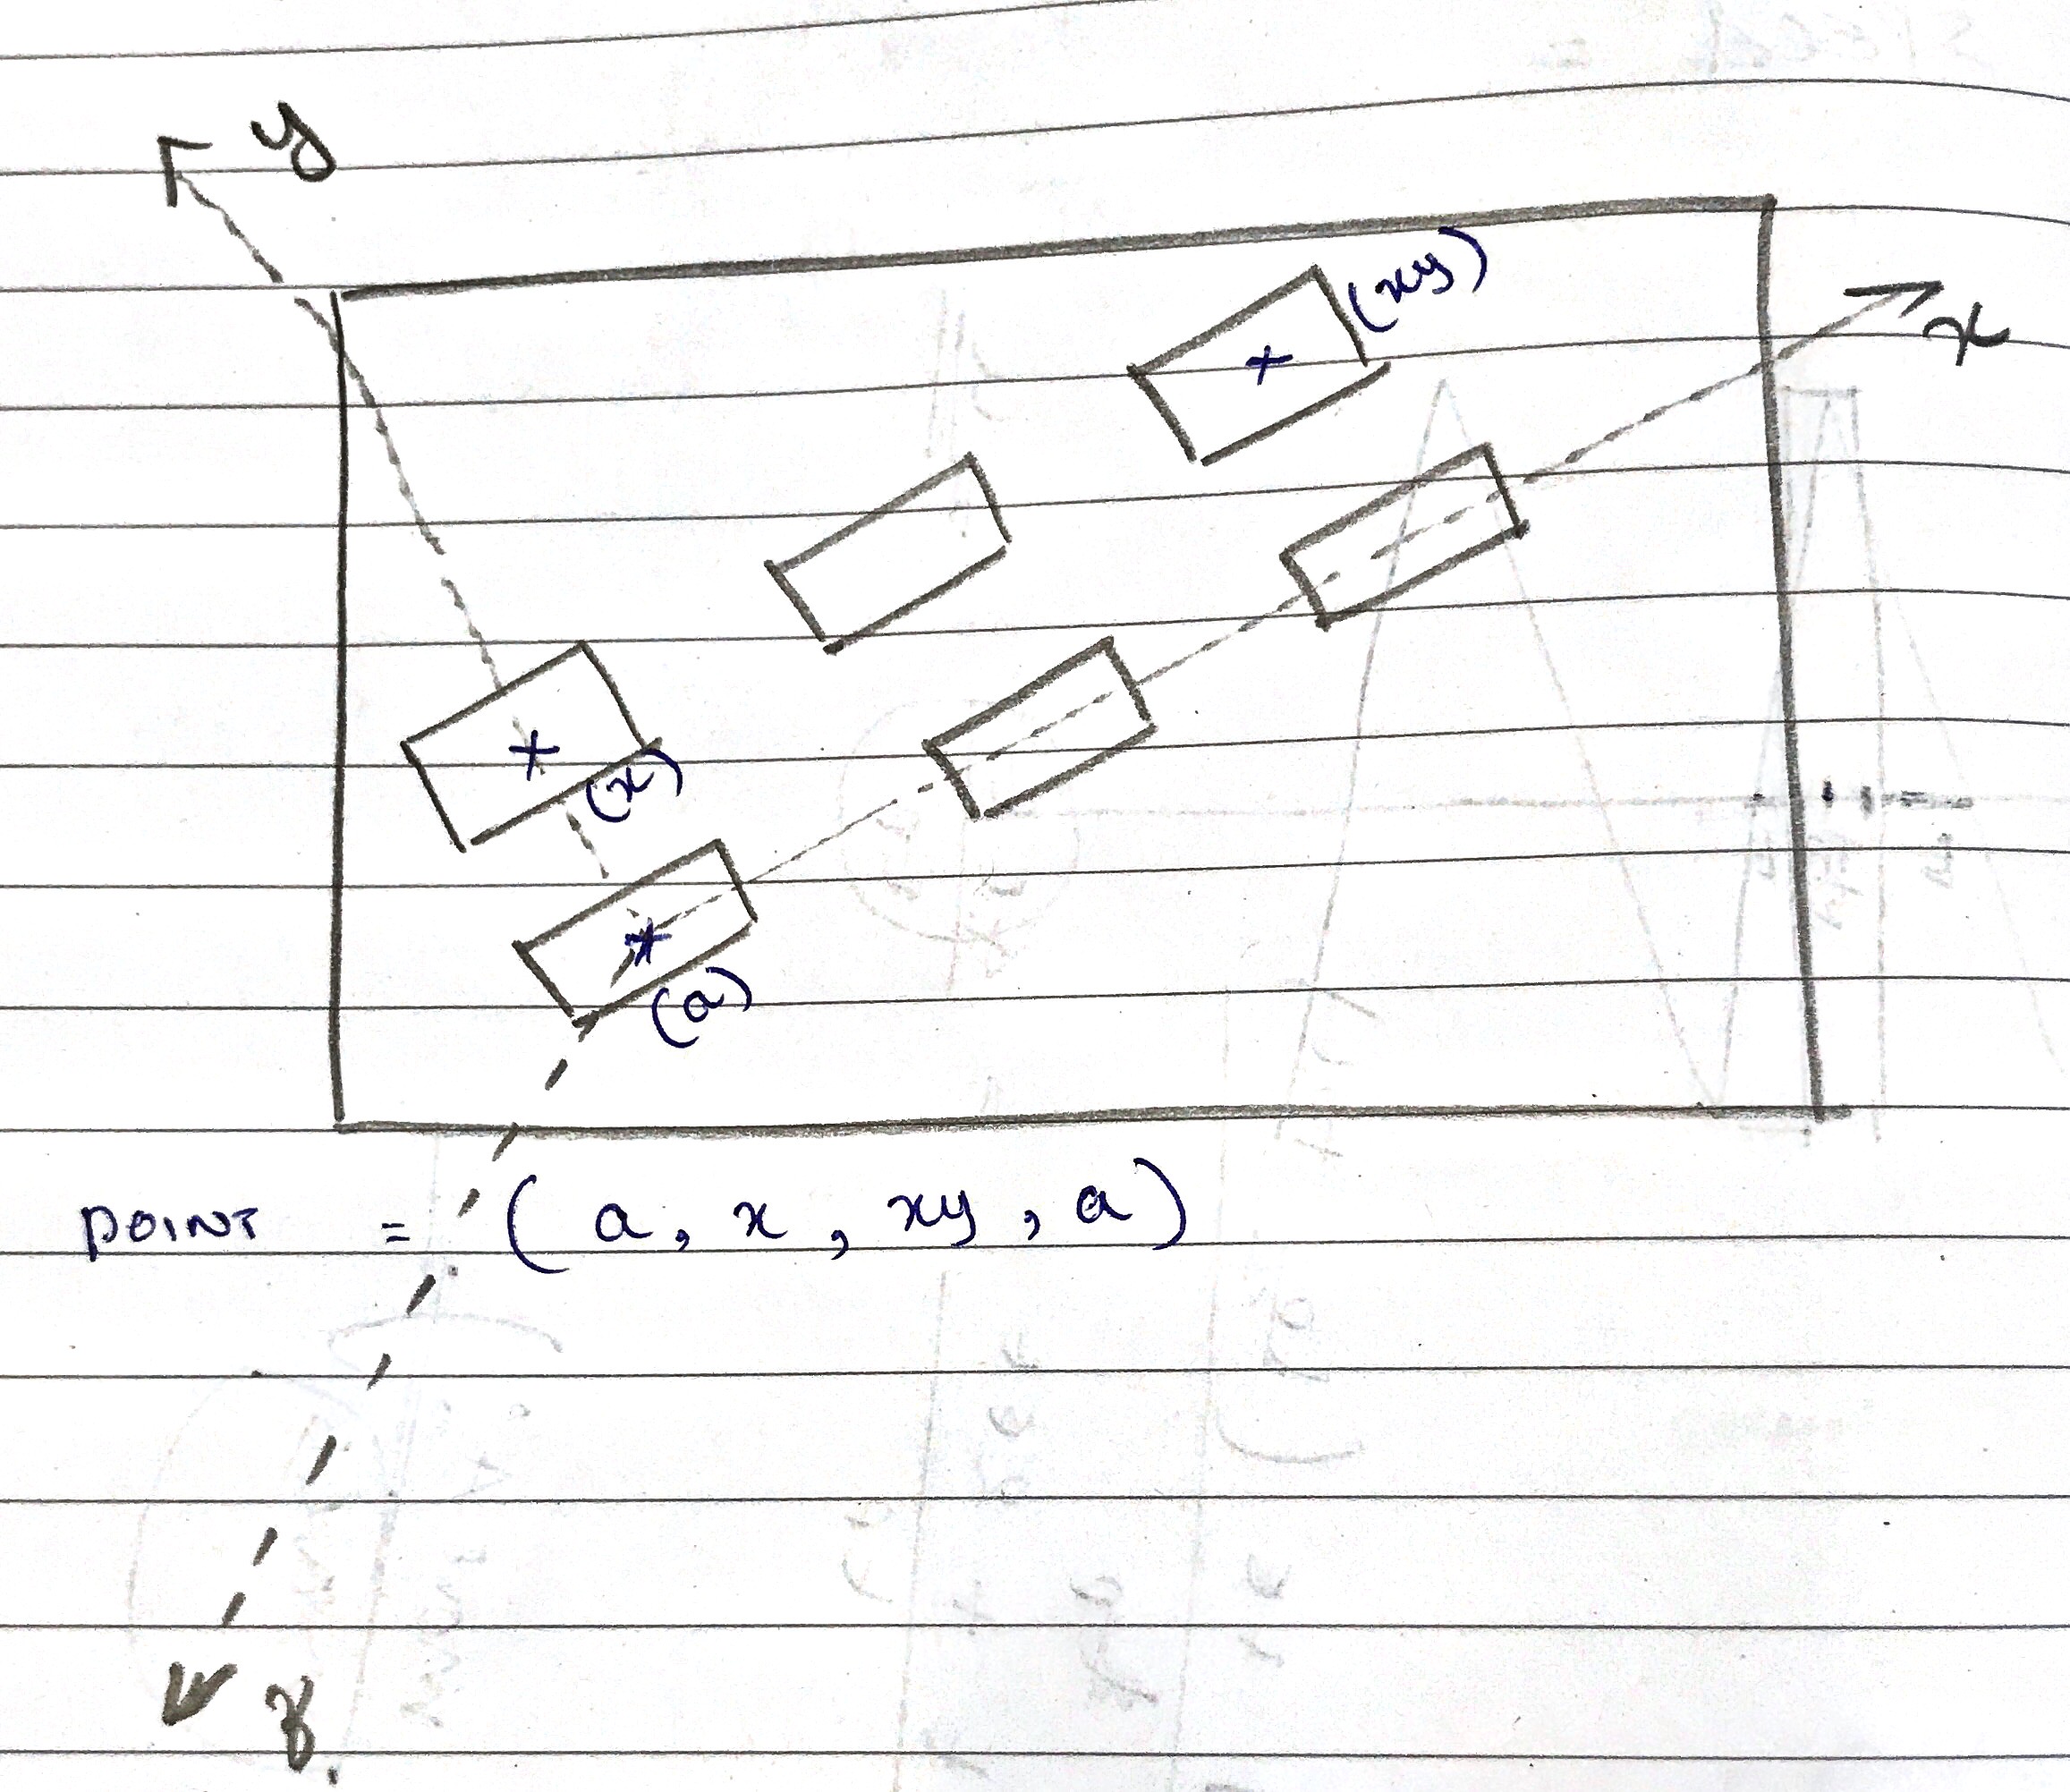 y
(xy)
x
(x)
(a)
POINT = (a, x, xy, a)
z.